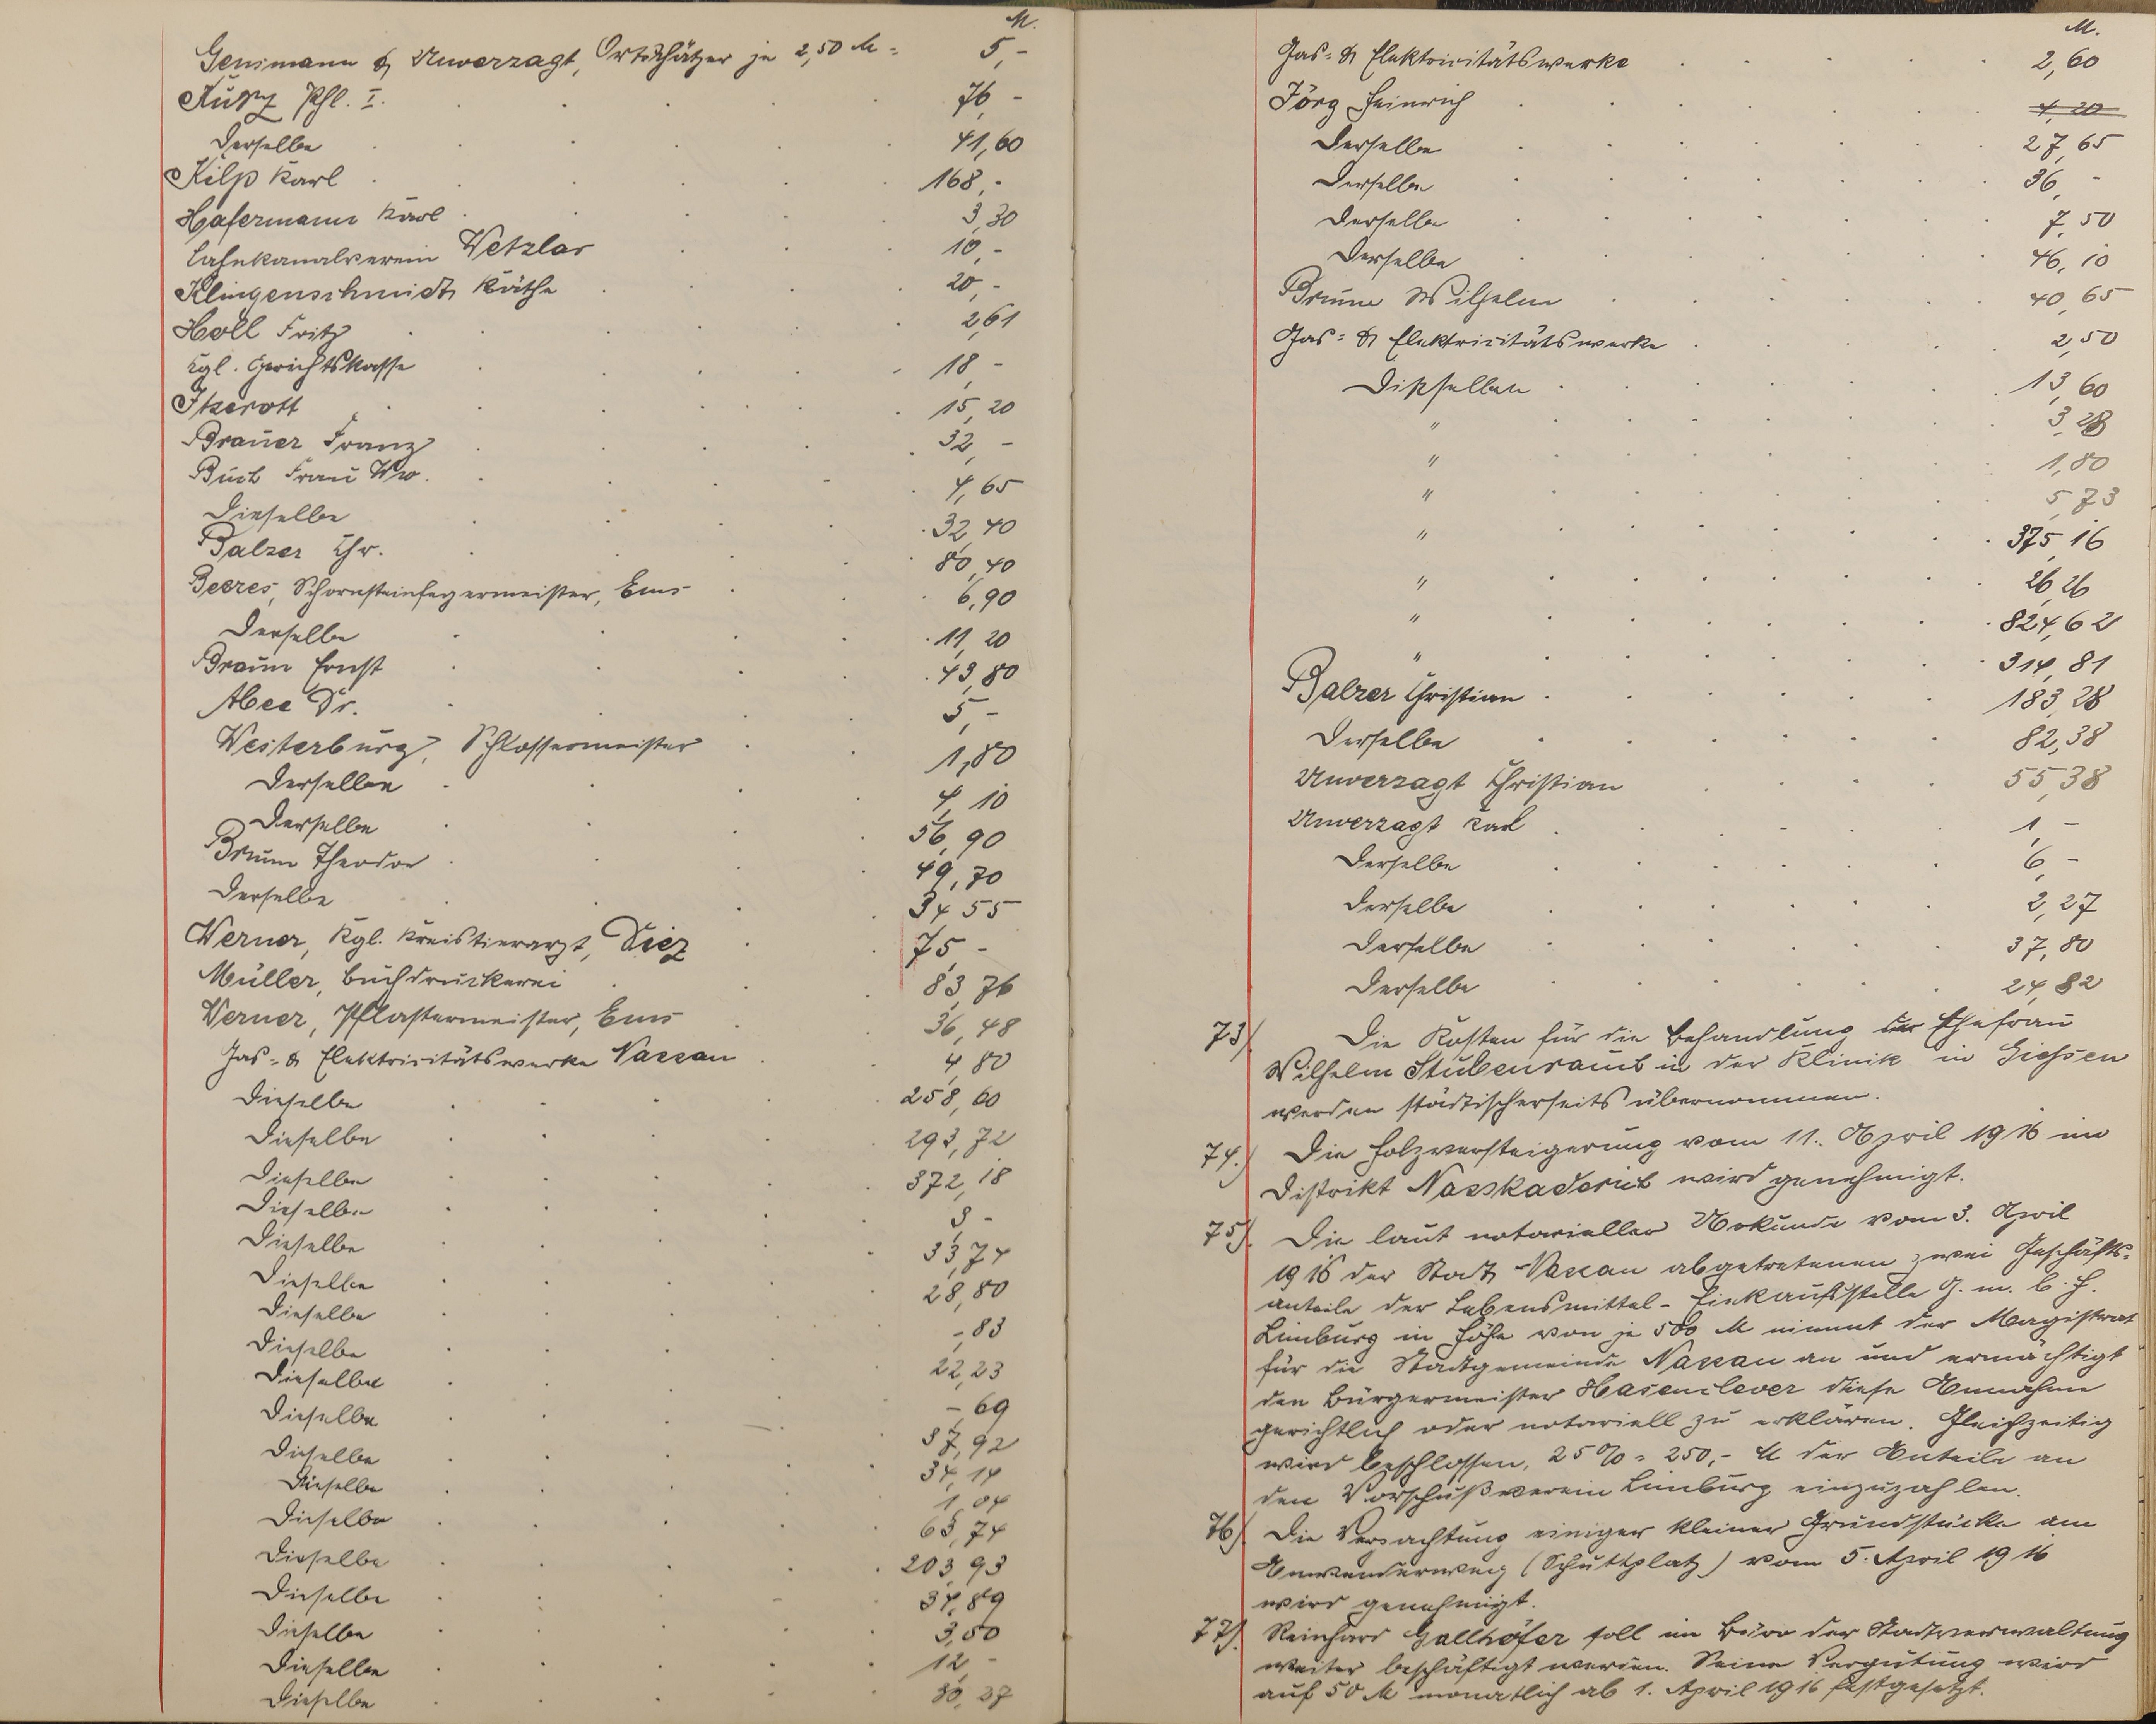 M.
Gensmann & Unverzagt, Ortsschätzer je 2,50 M = 5,-
Phl. I. 76,-
Derselbe 41,60
Kilp Karl 168,-
Hafermann Karl 3,30
Lahnkanalverein Wetzlar 10,-
Klingenschmidt Käthe 20,-
Holl Fritz 2,61
Kgl. Gerichtskasse 18,-
Itzerott 15,20
Brauer Franz 32,-
Buch Frau Ww. 4,65
Dieselbe 32,40
Balzer Chr. 80,40
Beeres, Schornsteinfegermeister, Ems 6,90
Derselbe 11,20
Braun Ernst 43,80
Abee Dr. 5,-
Westerburg, Schlossermeister 1,80
Derselbe 4,10
Derselbe 56,90
Brum Theodor 49,70
Derselbe 34,55
Werner, Kgl. Kreistierarzt, Diez 75,-
Müller, Buchdruckerei 83,76
Werner, Pflastermeister, Ems 36,48
Gas- & Elektricitätswerke Nassau 4,80
Dieselbe 258,60
Dieselbe 293,72
Dieselbe 372,18
Dieselbe 3,-
Dieselbe 33,74
Dieselbe 28,80
Dieselbe -,83
Dieselbe 22,23
Dieselbe -,69
Dieselbe 37,92
Dieselbe 34,14
Dieselbe 1,04
Dieselbe 65,74
Dieselbe 203,93
Dieselbe 34,89
Dieselbe 3,50
Dieselbe 12,-
Dieselbe 30,37
M.
Gas- & Elektricitätswerke 2,60
Jörg Heinrich 4,20
Derselbe 27,65
Derselbe 36,-
Derselbe 7,50
Derselbe 46,10
Brum Wilhelm 40,65
Gas- & Elektricitätswerke 2,50
Dieselben 13,60
" 3,28
" 1,80
" 5,73
" 375,16
" 26,26
" 824,62
" 314,81
Balzer Christian 183,28
Derselbe 82,38
Unverzagt Christian 55,38
Unverzagt Karl 1,-
Derselbe 6,-
Derselbe 2,27
Derselbe 37,80
Derselbe 24,82
73/ Die Kosten für die Behandlung der Ehefrau
Wilhelm Stubenrauch in der Klinik in Giessen
werden städtischerseits übernommen.
74.) Die Holzversteigerung vom 11. April 1916 im
Distrikt Nasskaderich wird genehmigt.
75). Die laut notarieller Urkunde vom 3. April
1916 der Stadt Nassau abgetretenen zwei Geschäfts-
anteile der Lebensmittel-Einkaufsstelle G.m.b.H.
Limburg in Höhe von je 500 M nimmt der Magistrat
für die Stadtgemeinde Nassau an und ermächtigt
den Bürgermeister Hasenclever diese Annahme
gerichtlich oder notariell zu erklären. Gleichzeitig
wird beschlossen, 25% = 250,- M der Anteile an
den Vorschußverein Limburg einzuzahlen.
76/. Die Verpachtung einiger kleiner Grundstücke am
(Schuttplatz) vom 5. April 1916
wird genehmigt.
77/. Reinhard Gallhöfer soll im Büro der Stadtverwaltung
weiter beschäftigt werden. Seine Vergütung wird
auf 50 M monatlich ab 1. April 1916 festgesetzt.